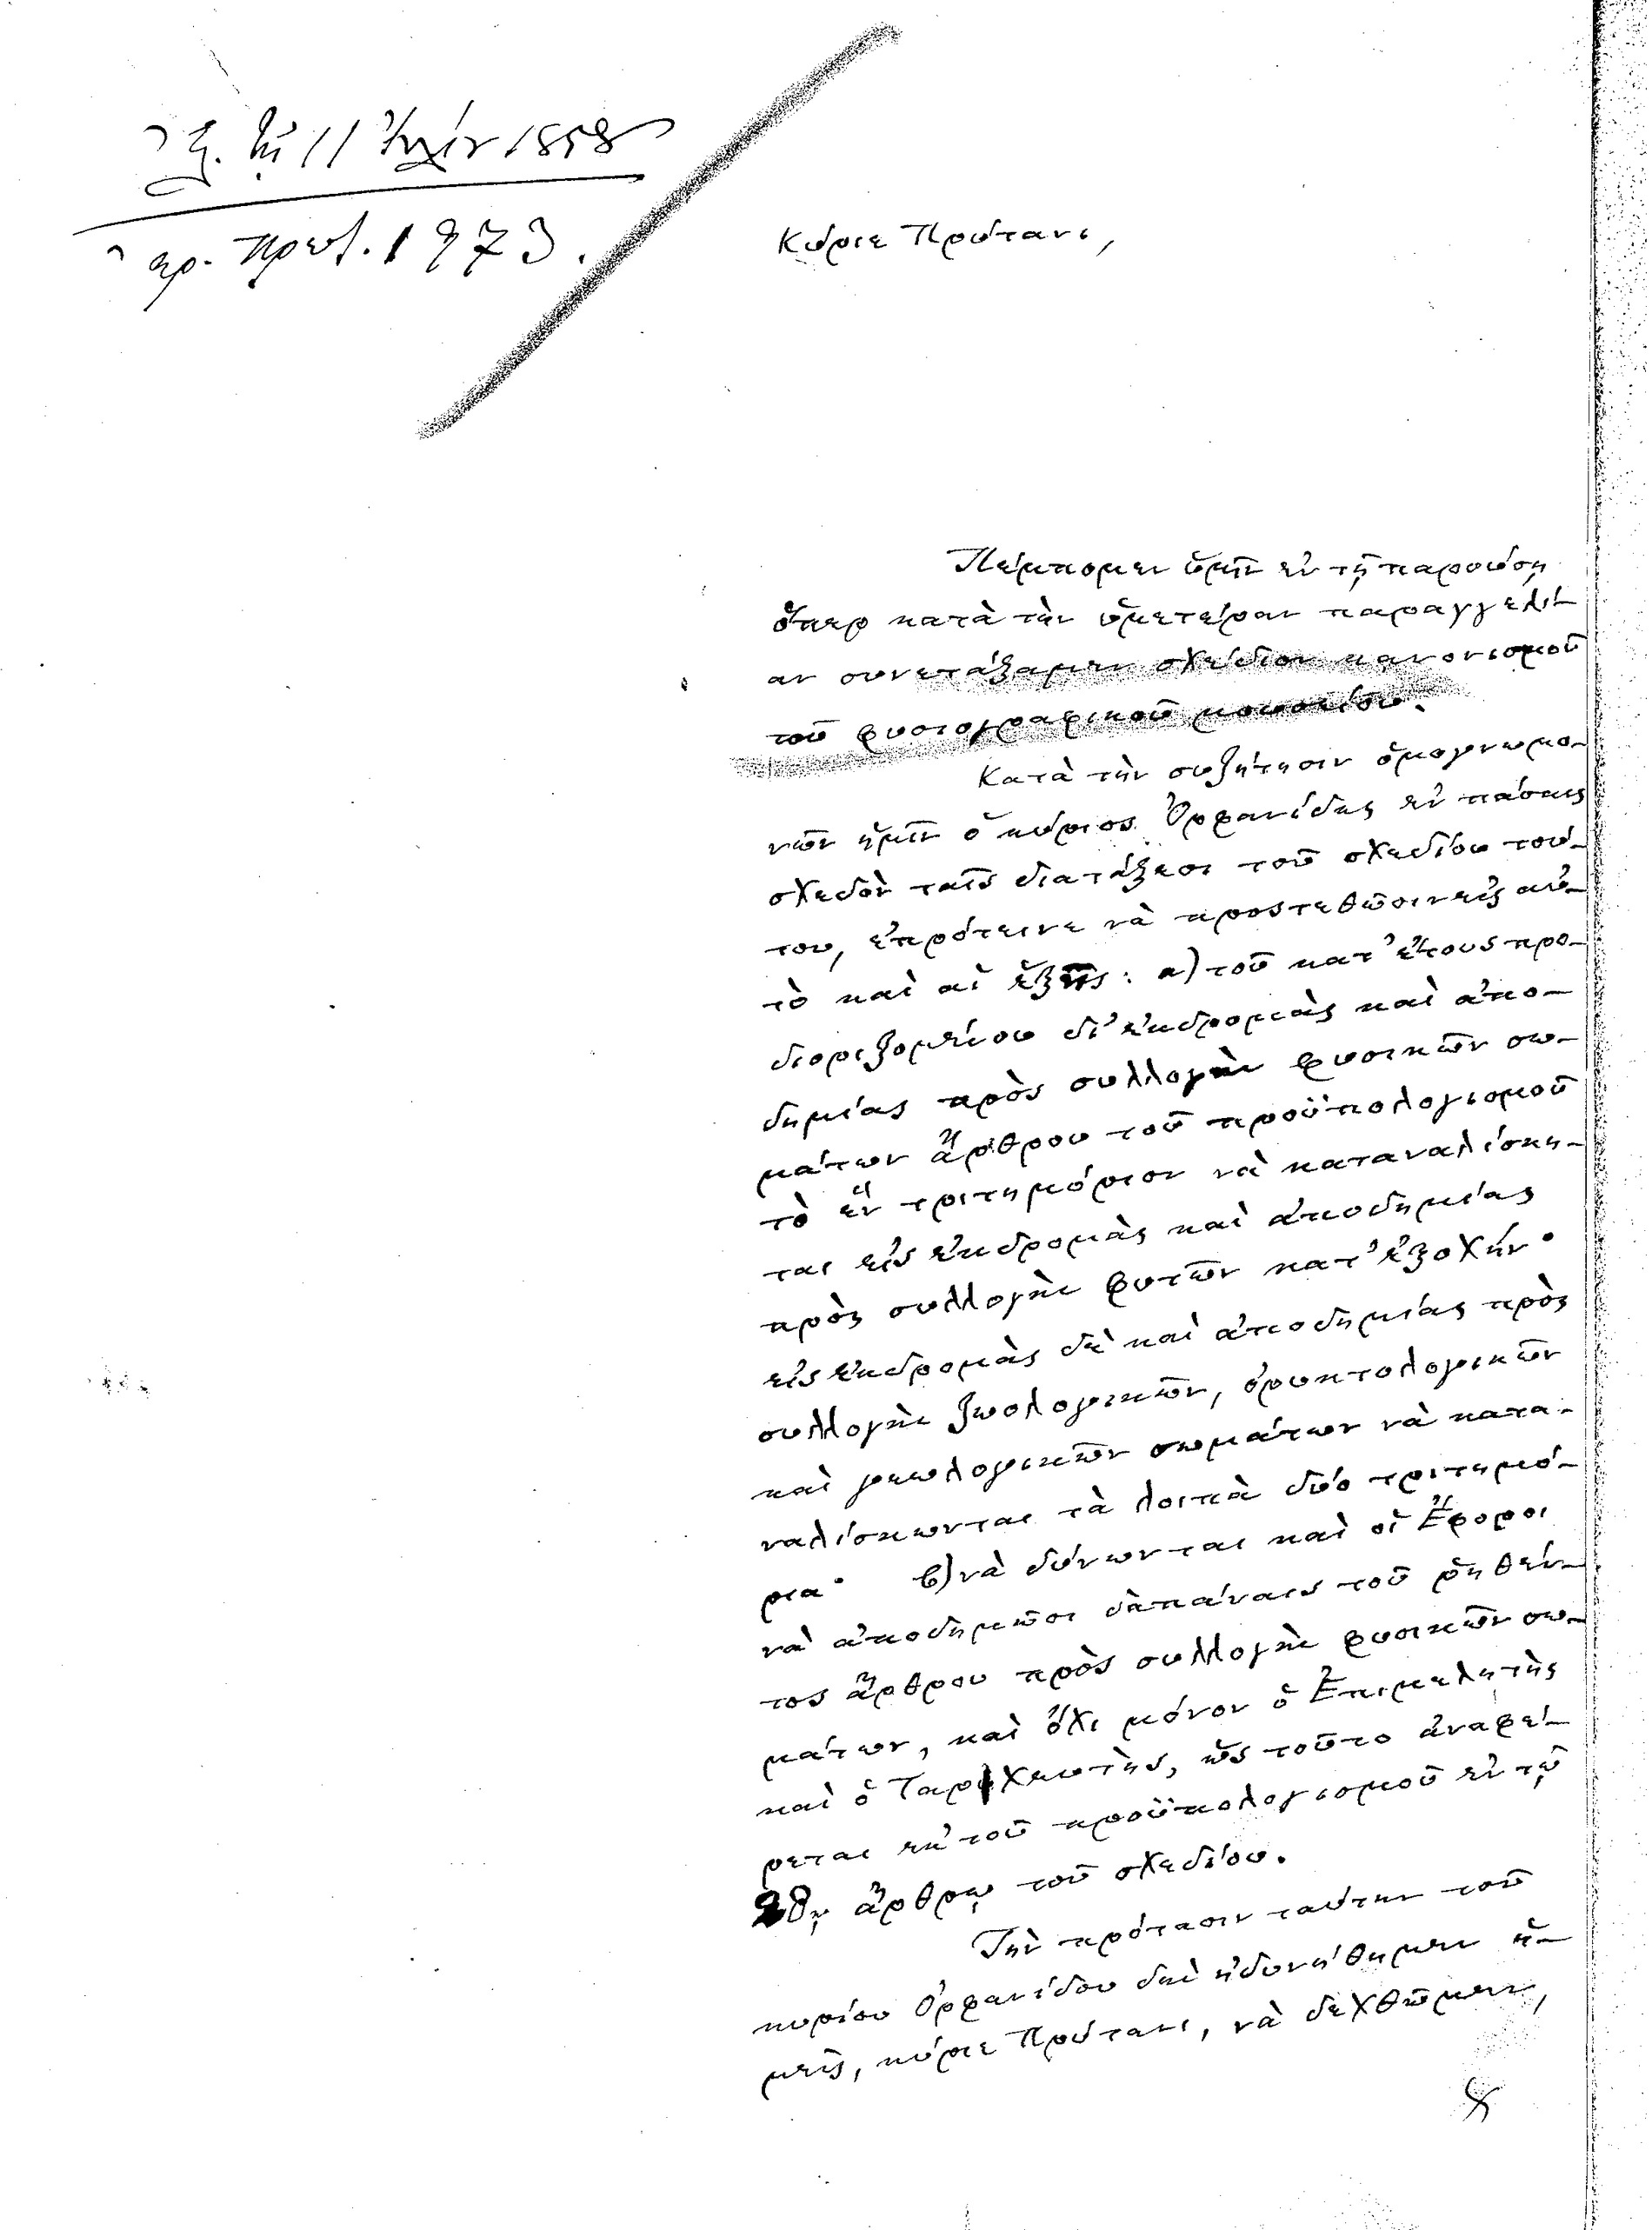 τῇ 11 1858
ἀρ. πρωτ. 1973.
Κύριε Πρύτανι,
Πέμπομεν ὑμῖν ἐν τῇ παρούσῃ
ὅπερ κατὰ τὴν ὑμετέραν παραγγελί-
αν συνετάξαμεν σχέδιον κανονισμοῦ
τοῦ φυσιογραφικοῦ μουσείου.
Κατὰ τὴν συζήτησιν ὁμογνωμο-
νῶν ἡμῖν ὁ κύριος Ὀρφανίδης ἐν πάσαις
σχεδὸν ταῖς διατάξεσι τοῦ σχεδίου τού-
του, ἐπρότεινε νὰ προστεθῶσιν εἰς αὐ-
τὸ καὶ αἱ ἑξῆς: α) τοῦ κατ' ἔτους προ-
διοριζομένου δι' ἐκδρομὰς καὶ ἀπο-
δημίας πρὸς συλλογὴν φυσικῶν σω-
μάτων ἄρθρου τοῦ προϋπολογισμοῦ
τὸ ἓν τριτημόριον νὰ καταναλίσκη-
ται εἰς ἐκδρομὰς καὶ ἀποδημίας
πρὸς συλλογὴν φυτῶν κατ' ἐξοχήν·
εἰς ἐκδρομὰς δὲ καὶ ἀποδημίας πρὸς
συλλογὴν ζωολογικῶν, ὀρυκτολογικῶν
καὶ γεωλογικῶν σωμάτων νὰ κατα-
ναλίσκωνται τὰ λοιπὰ δύο τριτημό-
ρια· β) νὰ δύνωνται καὶ οἱ Ἔφοροι
νὰ ἀποδημῶσι δαπάναις τοῦ ῥηθέν-
τος ἄρθρου πρὸς συλλογὴν φυσικῶν σω-
μάτων, καὶ ὄχι μόνον ὁ Ἐπιμελητὴς
καὶ ὁ Ταριχευτὴς, ὡς τοῦτο ἀναφέ-
ρεται ἐκ τοῦ προϋπολογισμοῦ ἐν τῷ
28ῳ ἄρθρῳ τοῦ σχεδίου.
Τὴν πρότασιν ταύτην τοῦ
κυρίου Ὀρφανίδου δὲν ἠδυνήθημεν ἡ-
μεῖς, κύριε Πρύτανι, νὰ δεχθῶμεν,